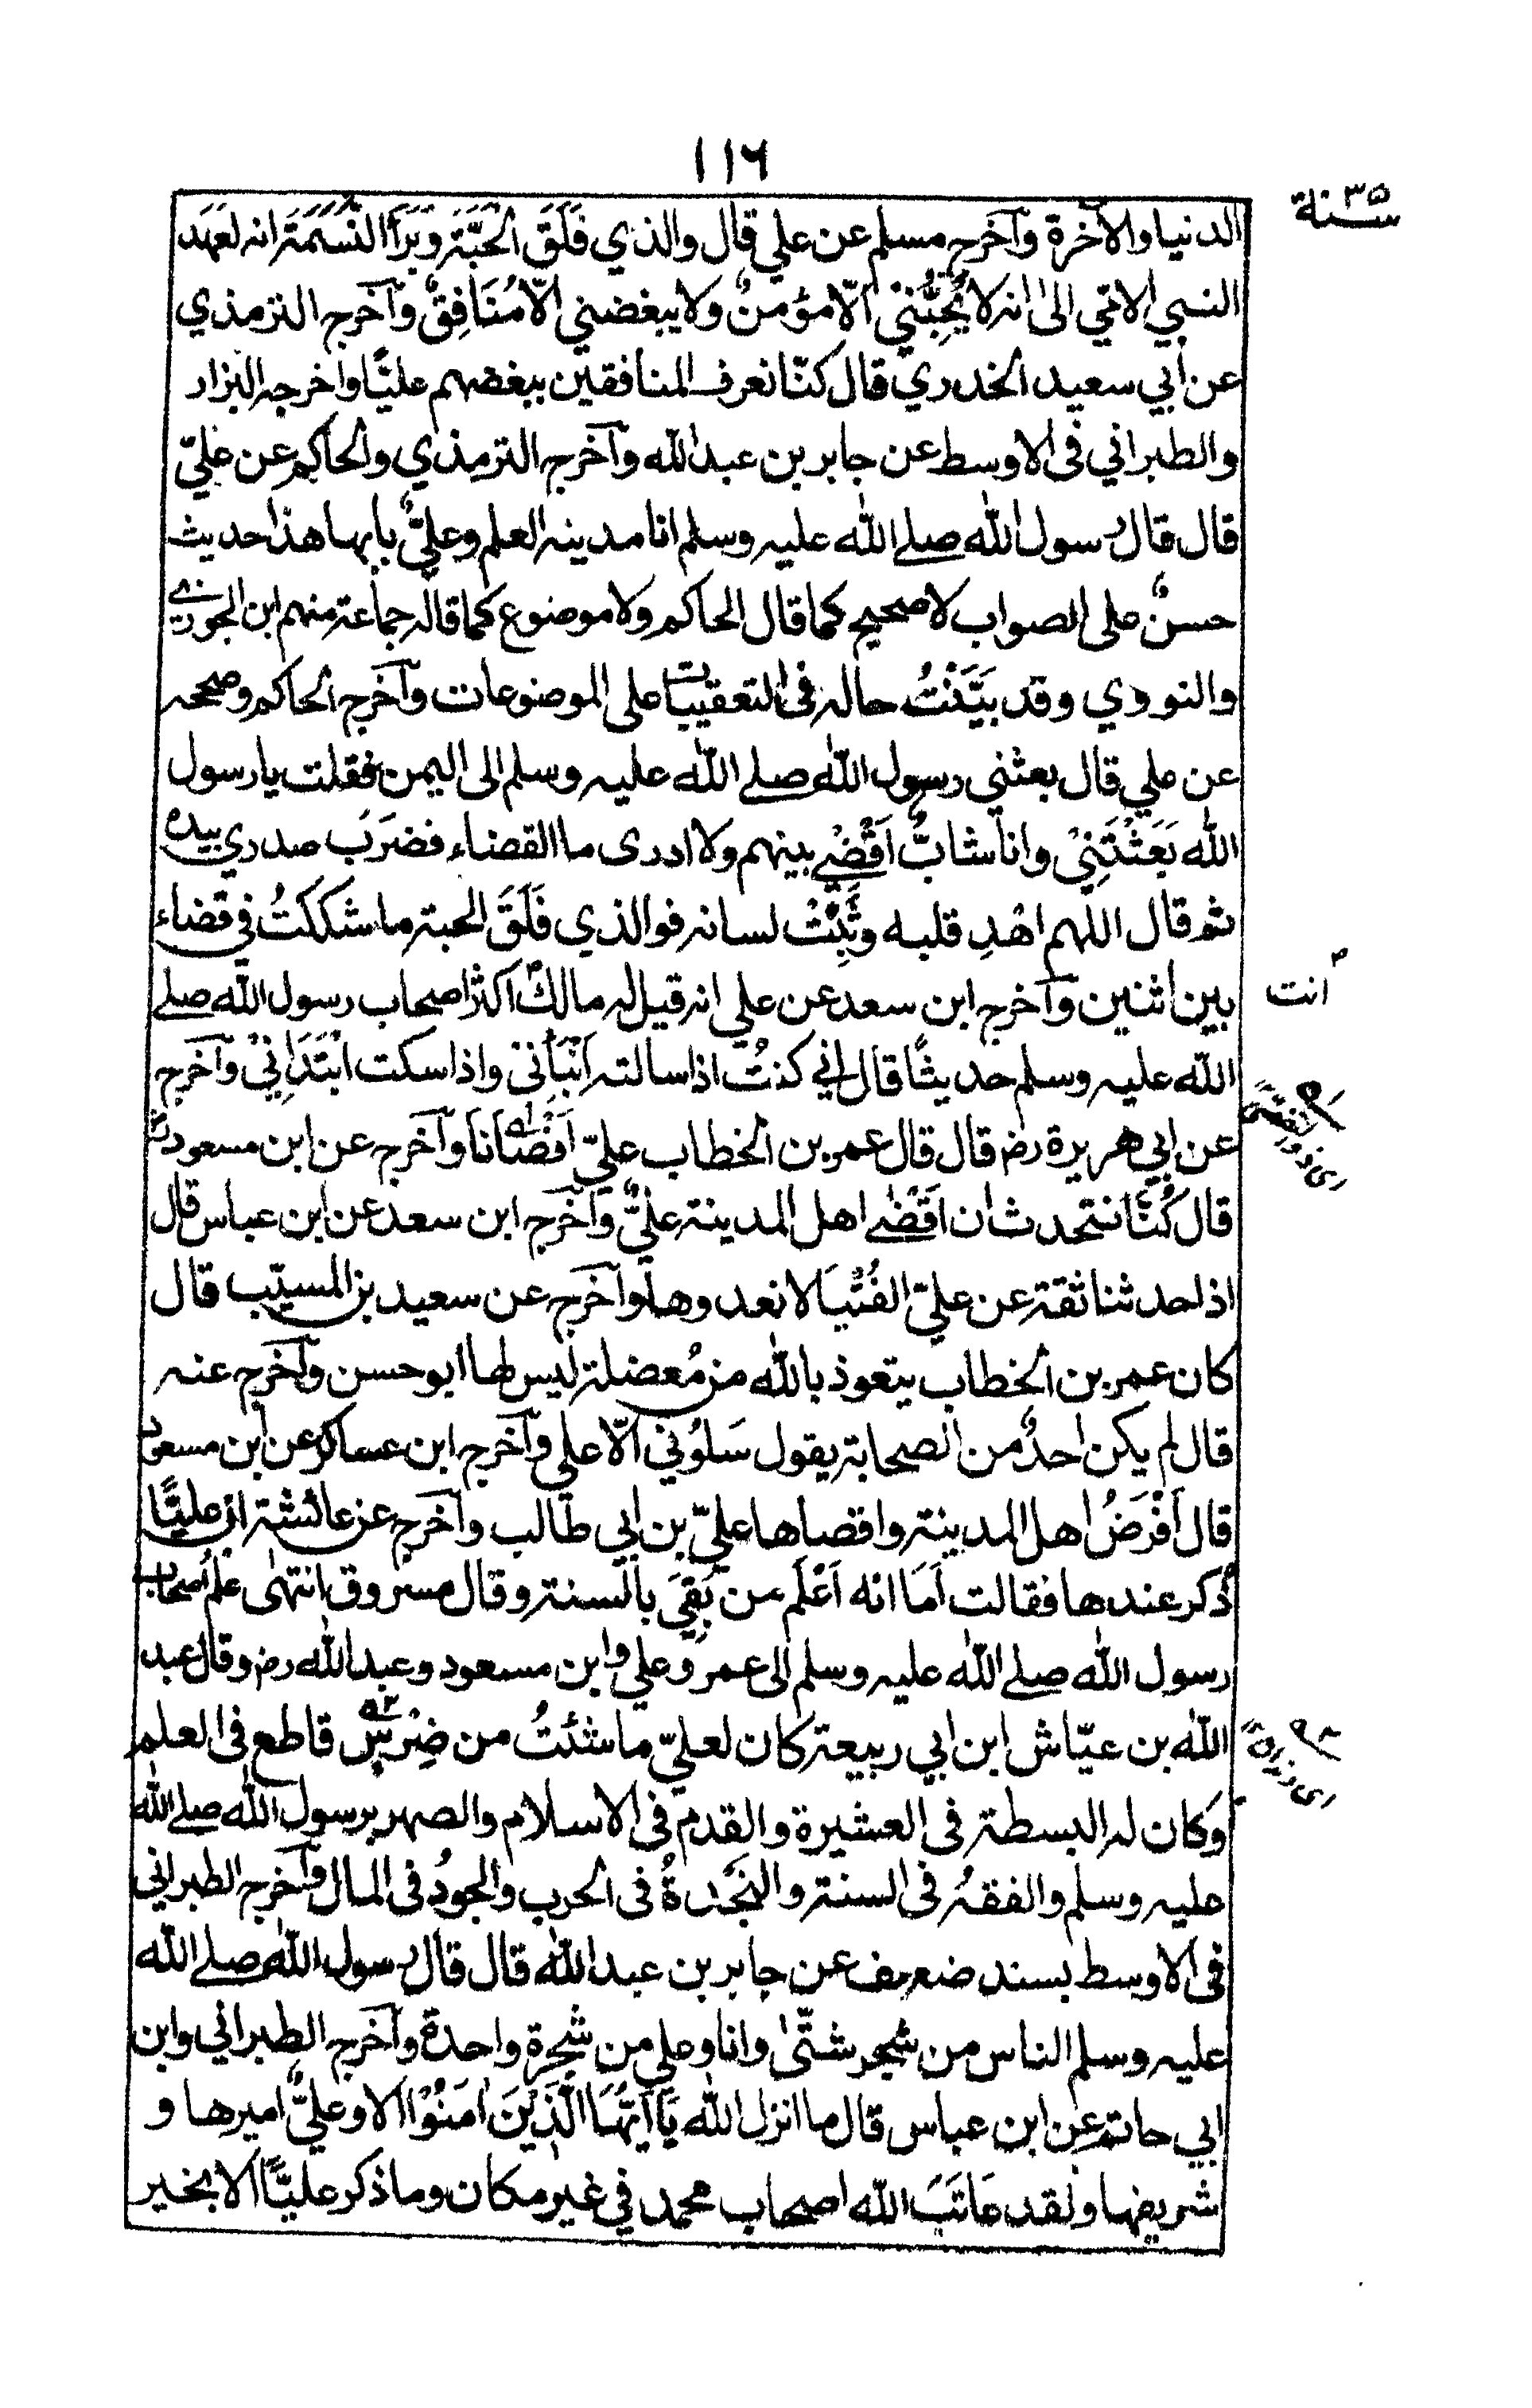 ١١٦
سنة ٣٥
الدنيا والآخرة وآخرج مسلم عن علي قال والذي فَلَقَ الحَبَّةَ وَبَرَأَ النَّسَمَةَ انه لعَهَد
النبي الامّي الىّ انه لا يُحِبُّنِيْ الّا مؤمنٌ ولا يبغضني الّا مُنَافِقٌ وآخرج الترمذي
عن ابي سعيد الخدري قال كنّا نعرف المنافقين ببغضهم عليًّا واخرجه البزار
والطبراني فى الاوسط عن جابر بن عبد الله وآخرج الترمذي والحاكم عن عليّ
قال قال رسول الله صلے الله عليه وسلم انا مدينة العلم وعليٌّ بابها هذا حديث
حسنٌ على الصواب لا صحيح كما قال الحاكم ولا موضوع كما قاله جماعة منهم ابن الجوزي
والنووي وقد بيَّنْتُ حاله فى التعقيبات على الموضوعات وآخرج الحاكم وصححه
عن علي قال بعثني رسول الله صلے الله عليه وسلم الى اليمن فقلت يا رسول
الله بَعَثْتَنِيْ وانا شابٌّ اَقْضِے بينهم ولا ادرى ما القضاء فضرَبَ صدري بيده
ثم قال اللهم اهْدِ قلبه وثَبِّتْ لسانه فو الذي فَلَقَ الحبة ما شككتُ في قضاء
بين اثنين وآخرج ابن سعد عن علي انه قيل له مالك اكثر اصحاب رسول الله صلے
انت
الله عليه وسلم حديثًا قال اني كنتُ اذا سالته اَنْبَأَنى واذا سكت ابْتَدَاَنِيْ وآخرج
عن ابي هريرة رض قال قال عمر بن الخطاب عليّ اَقْضَانا وآخرج عن ابن مسعود
قال كُنَّا نتحدث ان اَقْضٰے اهل المدينة عليٌّ وآخرج ابن سعد عن ابن عباس قال
اذا حدثنا ثقة عن عليّ الفُتْيَا لا نعدوها وآخرج عن سعيد بن المسيّب قال
كان عمر بن الخطاب يتعوذ بالله من مُعضلة ليس لها ابو حسن وآخرج عنه
قال لم يكن احدٌ من الصحابة يقول سَلوُني الّا علي وآخرج ابن عساكر عن ابن مسعود
قال اَفْرَضُ اهل المدينة واقضاها عليّ بن ابي طالب وآخرج عن عائشة ان عليًّا
ذُكر عندها فقالت اَمَا انه اَعْلَم من بَقِيَ بالسنة وقال مسروق انتهٰى علم اصحاب
رسول الله صلے الله عليه وسلم الى عمر وعلي وابن مسعود وعبد الله رض وقال عبد
الله بن عيّاش ابن ابي ربيعة كان لعليّ ما شئتُ من ضِرْسٍ قاطع فى العلم
وكان له البسطة فى العشيرة والقدم فى الاسلام والصهر برسول الله صلے الله
عليه وسلم والفقهُ فى السنة والنَجْدةُ فى الحرب والجودُ فى المال وآخرج الطبراني
فى الاوسط بسند ضعيف عن جابر بن عبد الله قال قال رسول الله صلے الله
عليه وسلم الناس من شجر شتّىٰ وانا وعلي من شجرة واحدة وآخرج الطبراني وابن
ابي حاتم عن ابن عباس قال ما انزل الله يَااَيُّهَا الَّذِيْنَ اٰمَنُوْا الا وعليٌّ اميرها و
شريفها ولقد عَاتَبَ الله اصحاب محمد في غير مكان وما ذكر عليًّا الا بخير